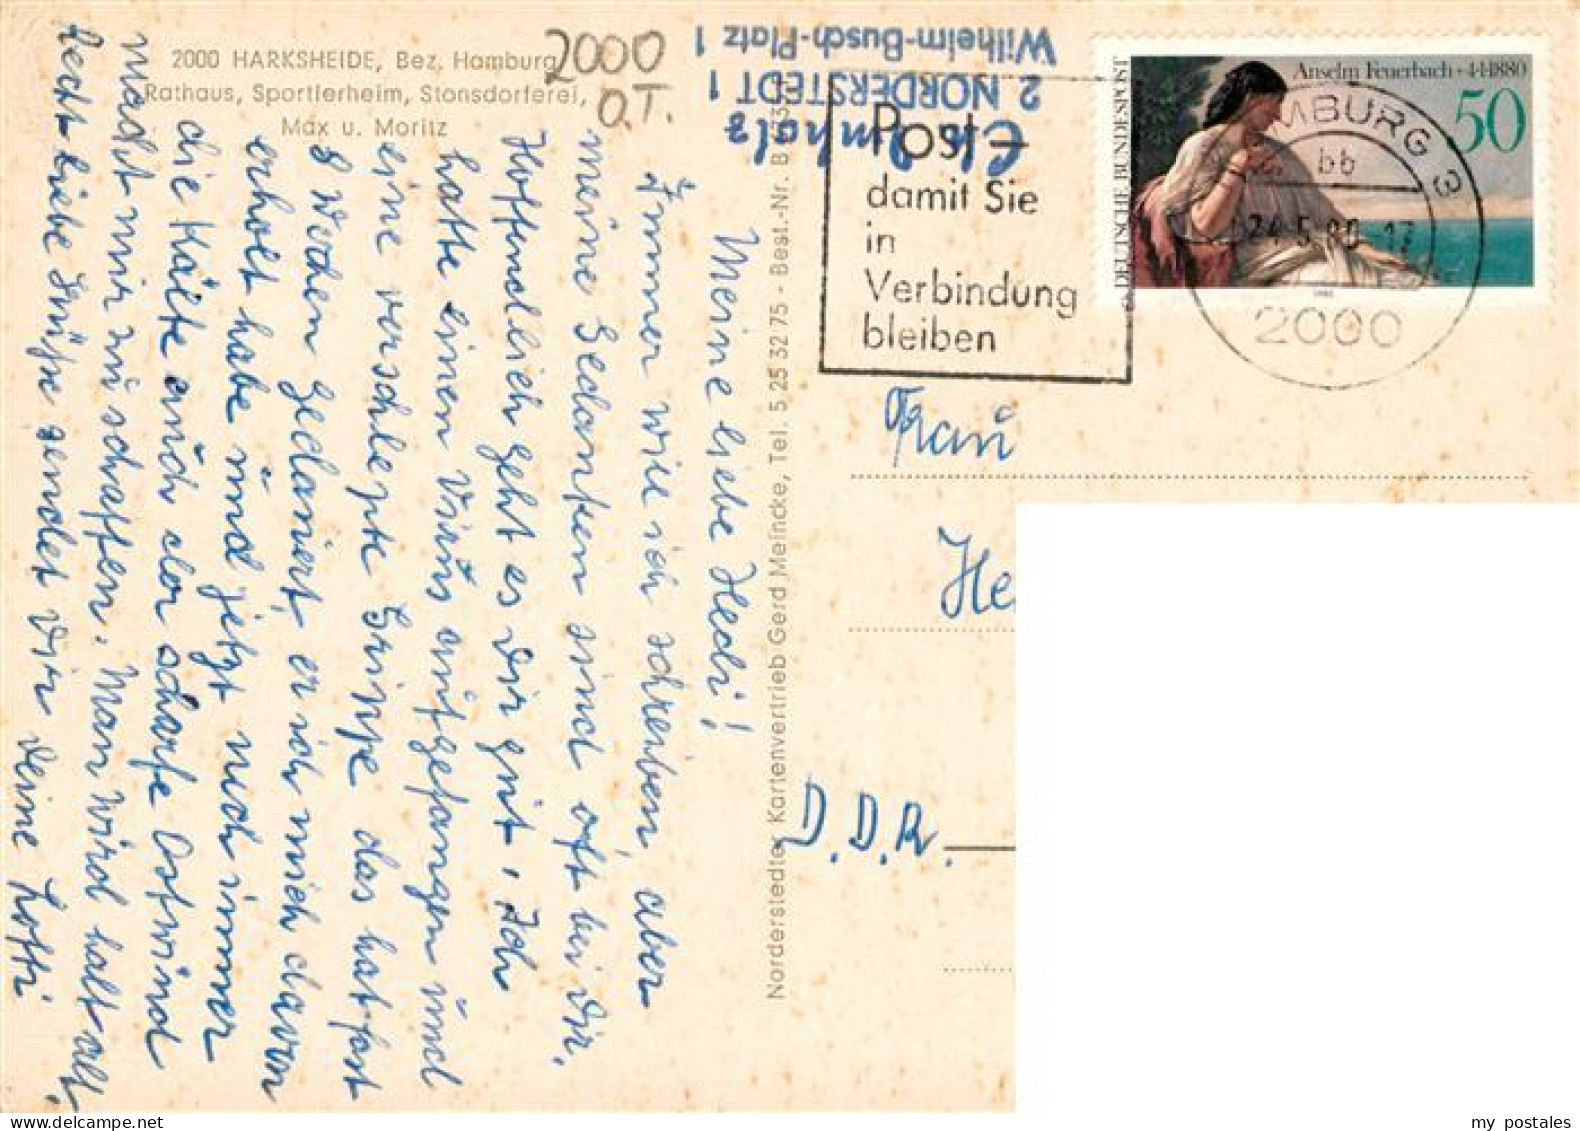 2000 HARKSHEIDE, Bez. Hamburg
Rathaus, Sportlerheim, Stonsdorferei,
Max u. Moritz
2000
O.T.
2. NORDERSTEDT 1
Wilhelm-Busch-Platz 1
Post –
damit Sie
in
Verbindung
bleiben
Anselm Feuerbach + 4·1·1880
50
DEUTSCHE BUNDESPOST
HAMBURG 3
bb
24.5.80-17
2000
Norderstedter Kartenvertrieb Gerd Meincke, Tel. 5 25 32 75 - Best.-Nr. B
Meine liebe Hedi!
Immer will ich schreiben, aber
meine Gedanken sind oft bei Dir.
Hoffendlich geht es Dir gut, Ich
hatte einen Virus aufgefangen und
eine verschlepte Grippe das hat fast
8 Wochen gedauert, er ich mich davon
erholt habe und jetzt noch immer
die Kälte auch der scharfe Ostwind
macht mir zu schaffen. Man wird halt alt.
Recht liebe Grüße sendet Dir Deine Lotti
Frau
He
D.D.R.
my postales